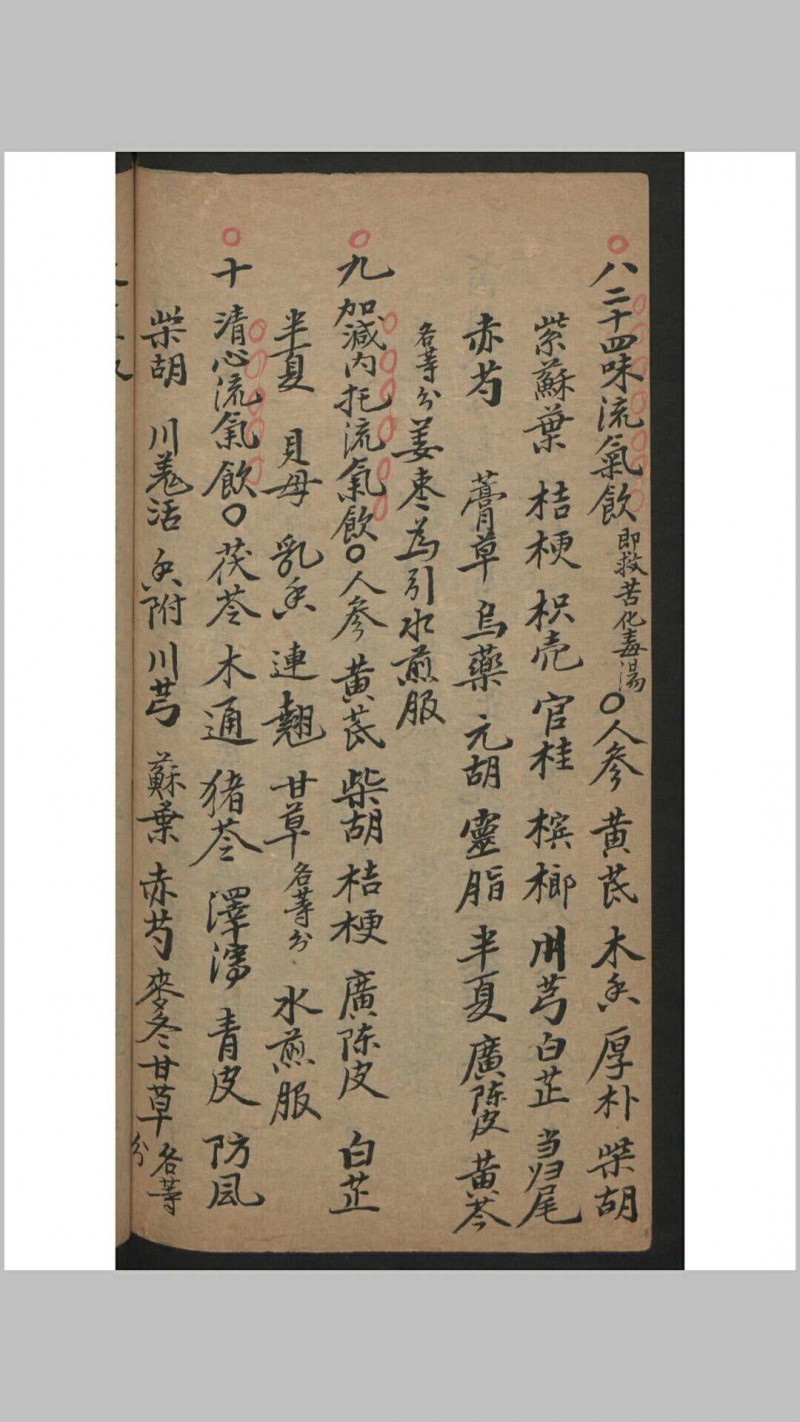 八 二十四味流氣飲 即救苦化毒湯 〇人參 黄芪 木香 厚朴 柴胡
紫蘇葉 桔梗 枳壳 官桂 槟榔 川芎 白芷 当归尾
赤芍 藁草 烏藥 元胡 靈脂 半夏 廣陈皮 黄芩
各等分 姜枣為引水煎服
九 加減内托流氣飲〇人參 黄芪 柴胡 桔梗 廣陈皮 白芷
半夏 貝母 乳香 連翹 甘草 各等分 水煎服
十 清心流氣飲〇茯苓 木通 猪苓 澤瀉 青皮 防風
柴胡 川羗活 香附 川芎 蘇葉 赤芍 麥冬 甘草 各等分